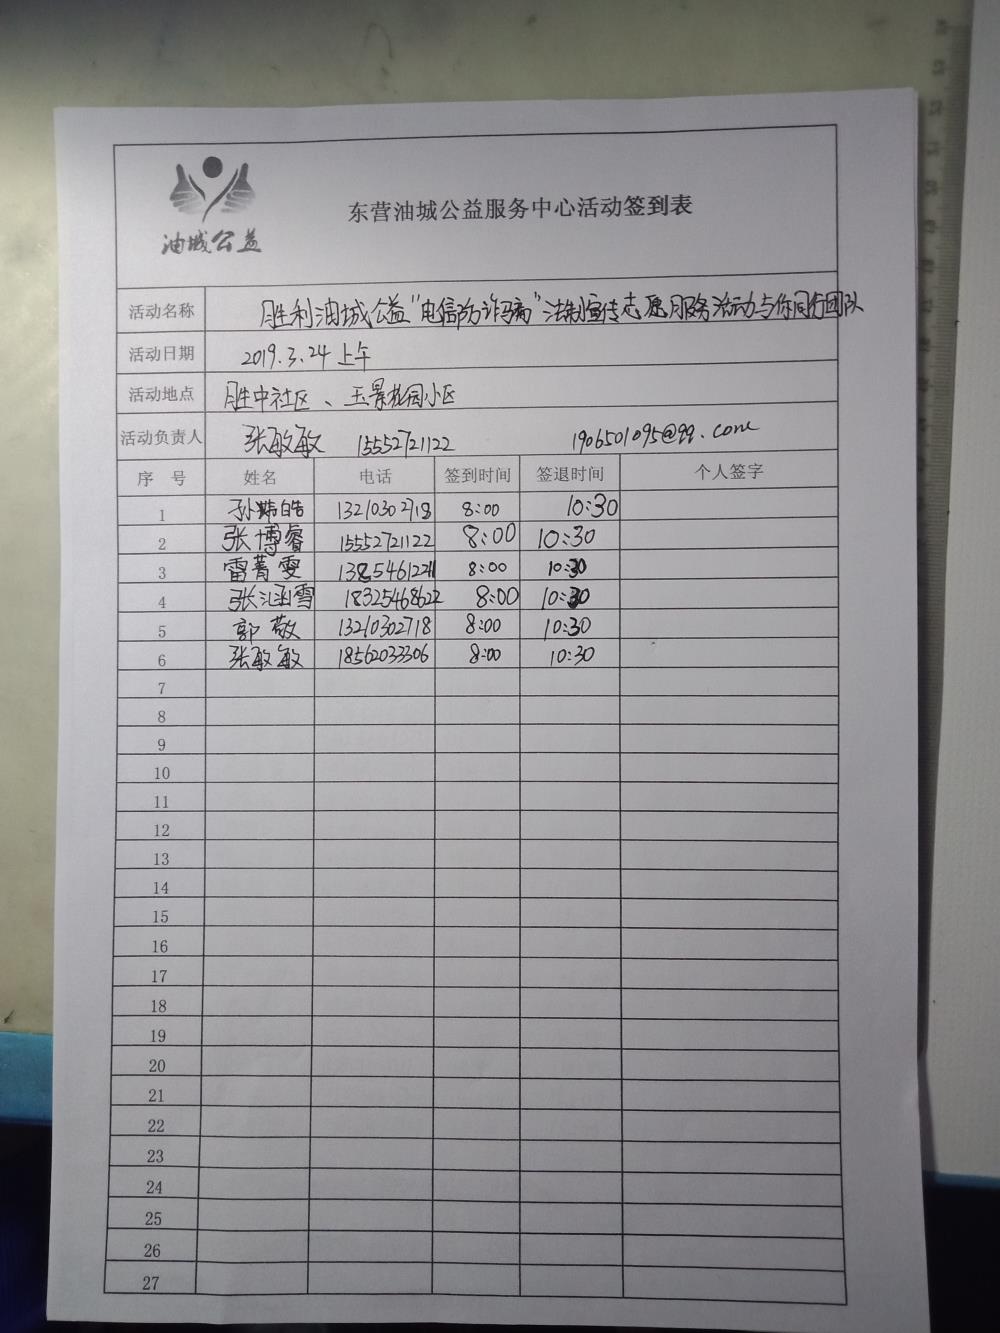 油城公益
东营油城公益服务中心活动签到表
活动名称 胜利油城公益"电信防诈骗"法制宣传志愿服务活动与你同行团队
活动日期 2019.3.24上午
活动地点 胜中社区、玉景花园小区
活动负责人 张敏敏 15552721122 1906501095@qq.com
序 号 姓名 电话 签到时间 签退时间 个人签字
1 孙炜皓 13210302718 8:00 10:30
2 张博睿 15552721122 8:00 10:30
3 雷菁雯 8:00 10:30
4 张涵雪 18325468622 8:00 10:30
5 郭敬 13210302718 8:00 10:30
6 张敏敏 18562033306 8:00 10:30
7
8
9
10
11
12
13
14
15
16
17
18
19
20
21
22
23
24
25
26
27